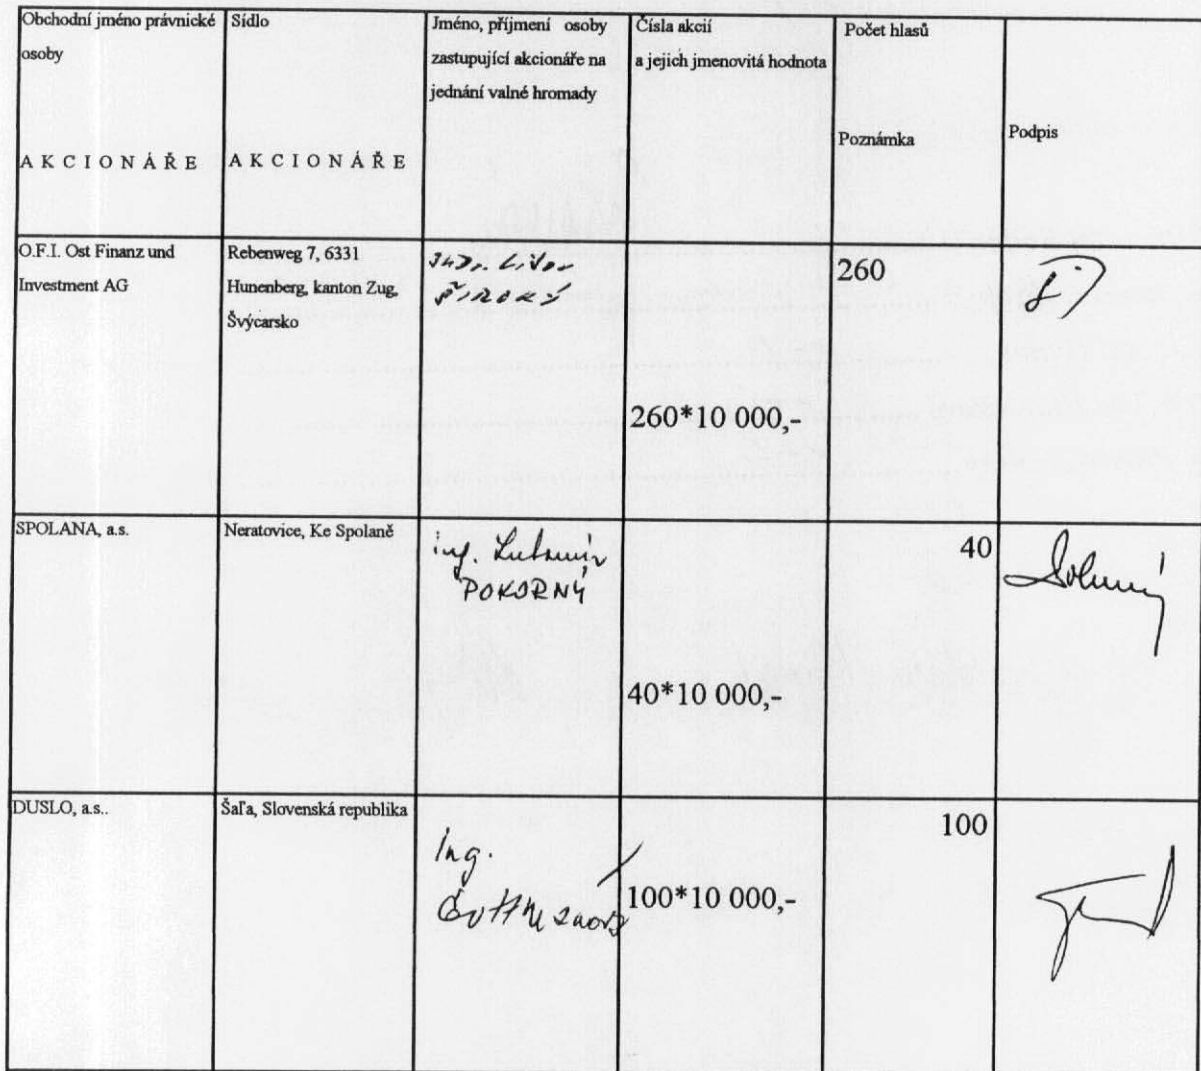 Obchodní jméno právnické
osoby
A K C I O N Á Ř E
Sídlo
A K C I O N Á Ř E
Jméno, příjmení osoby
zastupující akcionáře na
jednání valné hromady
Čísla akcií
a jejich jmenovitá hodnota
Počet hlasů
Poznámka
Podpis
O.F.I. Ost Finanz und
Investment AG
Rebenweg 7, 6331
Hunenberg, kanton Zug,
Švýcarsko
JUDr. Libor
ŠIROKÝ
260*10 000,-
260
SPOLANA, a.s.
Neratovice, Ke Spolaně
ing. Lubomír
POKORNÝ
40*10 000,-
40
DUSLO, a.s..
Šaľa, Slovenská republika
Ing.
100*10 000,-
100